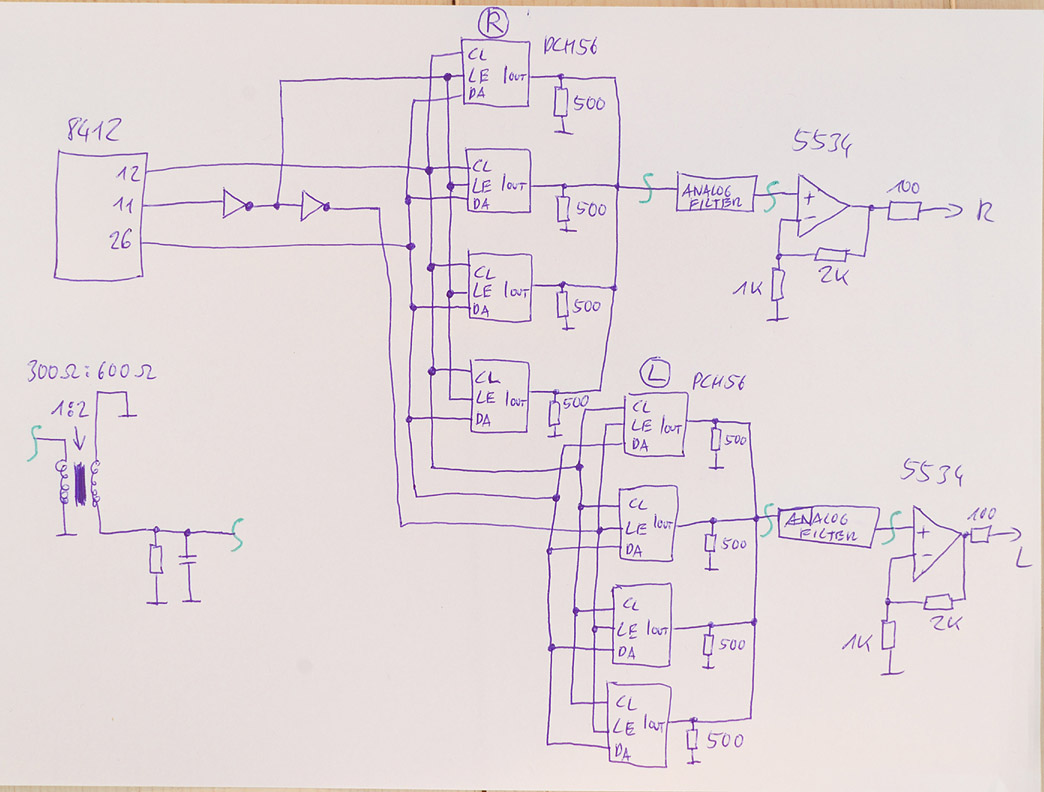 R
PCM56
CL
LE IOUT
DA
500
8412
12
11
26
CL
LE IOUT
DA
500
ANALOG
FILTER
5534
+
-
100
R
2K
1K
CL
LE IOUT
DA
500
CL
LE IOUT
DA
500
300Ω:600Ω
1:2
L
PCM56
CL
LE IOUT
DA
500
CL
LE IOUT
DA
500
ANALOG
FILTER
5534
+
-
100
L
2K
1K
CL
LE IOUT
DA
500
CL
LE IOUT
DA
500